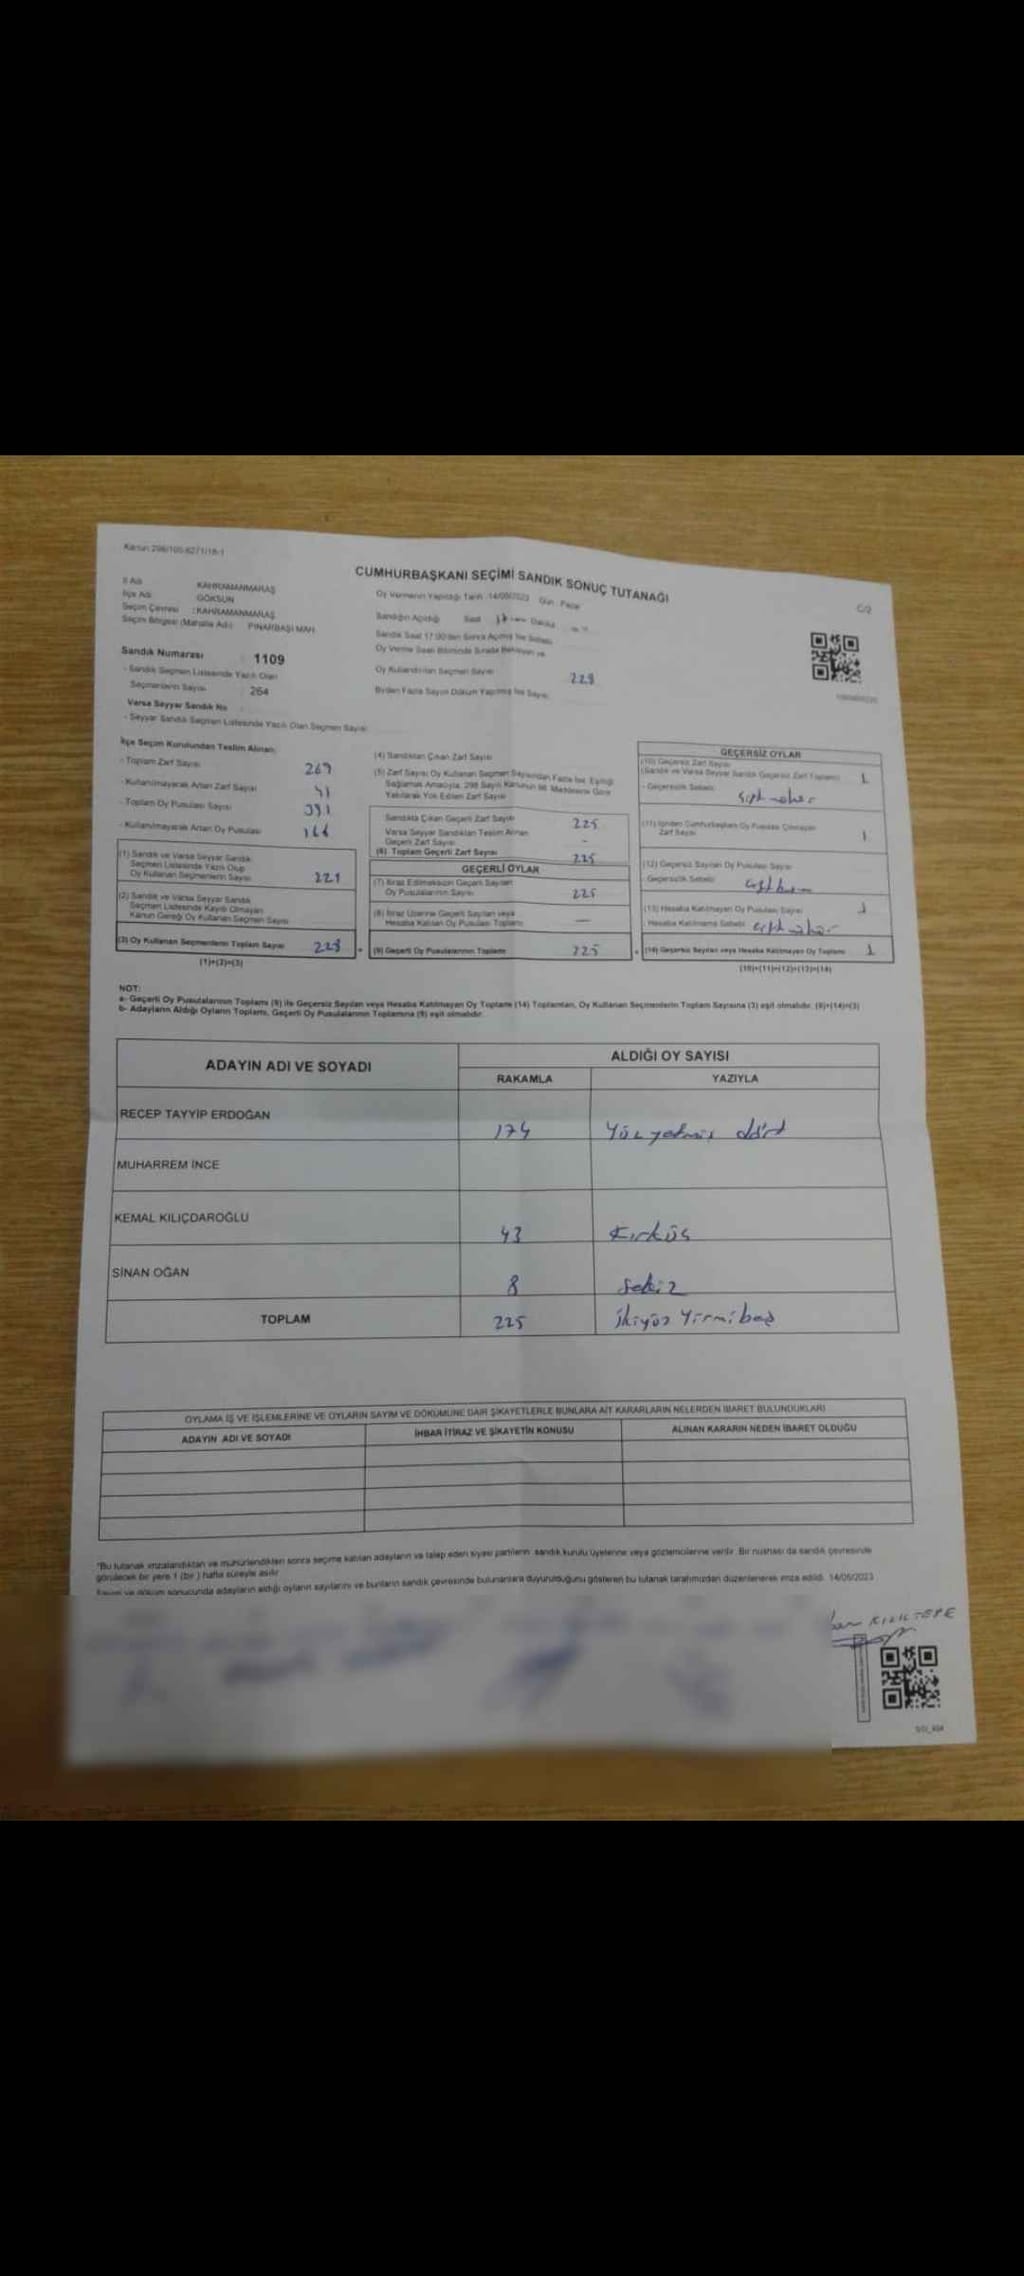 Kanun:298/105-6271/18-1
CUMHURBAŞKANI SEÇİMİ SANDIK SONUÇ TUTANAĞI
C/2
İl Adı KAHRAMANMARAŞ
İlçe Adı GÖKSUN
Seçim Çevresi : KAHRAMANMARAŞ
Seçim Bölgesi (Mahalle Adı) PINARBAŞI MAH.
Oy Vermenin Yapıldığı Tarih :14/05/2023 Gün : Pazar
Sandığın Açıldığı Saat Dakika
Sandık Saat 17:00'den Sonra Açılmış İse Sebebi
Oy Verme Saati Bitiminde Sırada Bekleyen ve
Oy Kullandırılan Seçmen Sayısı
Birden Fazla Sayım Döküm Yapılmış İse Sayısı
Sandık Numarası : 1109
- Sandık Seçmen Listesinde Yazılı Olan
Seçmenlerin Sayısı 264
Varsa Seyyar Sandık No
- Seyyar Sandık Seçmen Listesinde Yazılı Olan Seçmen Sayısı
İlçe Seçim Kurulundan Teslim Alınan;
- Toplam Zarf Sayısı 269
- Kullanılmayarak Artan Zarf Sayısı 41
- Toplam Oy Pusulası Sayısı 391
- Kullanılmayarak Artan Oy Pusulası
(1) Sandık ve Varsa Seyyar Sandık
Seçmen Listesinde Yazılı Olup
Oy Kullanan Seçmenlerin Sayısı
(2) Sandık ve Varsa Seyyar Sandık
Seçmen Listesinde Kayıtlı Olmayan
Kanun Gereği Oy Kullanan Seçmen Sayısı
(3) Oy Kullanan Seçmenlerin Toplam Sayısı
(1)+(2)=(3)
(4) Sandıktan Çıkan Zarf Sayısı
(5) Zarf Sayısı Oy Kullanan Seçmen Sayısından Fazla İse, Eşitliği
Sağlamak Amacıyla, 298 Sayılı Kanunun 98. Maddesine Göre
Yakılarak Yok Edilen Zarf Sayısı
Sandıkta Çıkan Geçerli Zarf Sayısı 225
Varsa Seyyar Sandıktan Teslim Alınan
Geçerli Zarf Sayısı -
(6) Toplam Geçerli Zarf Sayısı 225
GEÇERLİ OYLAR
(7) İtiraz Edilmeksizin Geçerli Sayılan
Oy Pusulalarının Sayısı 225
(8) İtiraz Üzerine Geçerli Sayılan veya
Hesaba Katılan Oy Pusulası Toplamı —
(9) Geçerli Oy Pusulalarının Toplamı 225
GEÇERSİZ OYLAR
(10) Geçersiz Zarf Sayısı
(Sandık ve Varsa Seyyar Sandık Geçersiz Zarf Toplamı)
- Geçersizlik Sebebi:
(11) İçinden Cumhurbaşkanı Oy Pusulası Çıkmayan
Zarf Sayısı
(12) Geçersiz Sayılan Oy Pusulası Sayısı
- Geçersizlik Sebebi:
(13) Hesaba Katılmayan Oy Pusulası Sayısı
- Hesaba Katılmama Sebebi:
(14) Geçersiz Sayılan veya Hesaba Katılmayan Oy Toplamı
(10)+(11)+(12)+(13)=(14)
NOT:
a- Geçerli Oy Pusulalarının Toplamı (9) ile Geçersiz Sayılan veya Hesaba Katılmayan Oy Toplamı (14) Toplamları, Oy Kullanan Seçmenlerin Toplam Sayısına (3) eşit olmalıdır. (9)+(14)=(3)
b- Adayların Aldığı Oyların Toplamı, Geçerli Oy Pusulalarının Toplamına (9) eşit olmalıdır.
ADAYIN ADI VE SOYADI
ALDIĞI OY SAYISI
RAKAMLA YAZIYLA
RECEP TAYYİP ERDOĞAN 174 Yüz yetmiş dört
MUHARREM İNCE
KEMAL KILIÇDAROĞLU 43 Kırküç
SİNAN OĞAN 8 Sekiz
TOPLAM 225 İkiyüz Yirmibeş
OYLAMA İŞ VE İŞLEMLERİNE VE OYLARIN SAYIM VE DÖKÜMÜNE DAİR ŞİKAYETLERLE BUNLARA AİT KARARLARIN NELERDEN İBARET BULUNDUKLARI
ADAYIN ADI VE SOYADI İHBAR İTİRAZ VE ŞİKAYETİN KONUSU ALINAN KARARIN NEDEN İBARET OLDUĞU
"Bu tutanak imzalandıktan ve mühürlendikten sonra seçime katılan adayların ve talep eden siyasi partilerin sandık kurulu üyelerine veya gözlemcilerine verilir. Bir nüshası da sandık çevresinde
görülecek bir yere 1 (bir ) hafta süreyle asılır.
Sayım ve döküm sonucunda adayların aldığı oyların sayılarını ve bunların sandık çevresinde bulunanlara duyurulduğunu gösteren bu tutanak tarafımızdan düzenlenerek imza edildi. 14/05/2023
KIZILTEPE